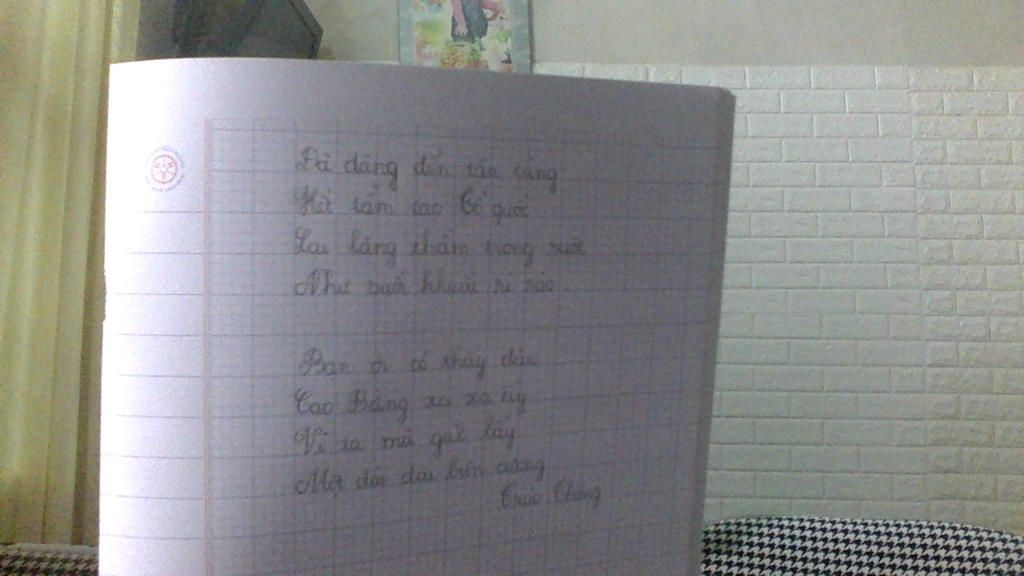 Đã dâng đến tận cùng
Hết tầm cao Tổ quốc
Lại lặng thầm trong suốt
Như suối khuất rì rào
Bạn ơi có thấy đâu
Cao Bằng xa xa ấy
Vì ta mà giữ lấy
Một dải dài biên cương
Trúc Thông